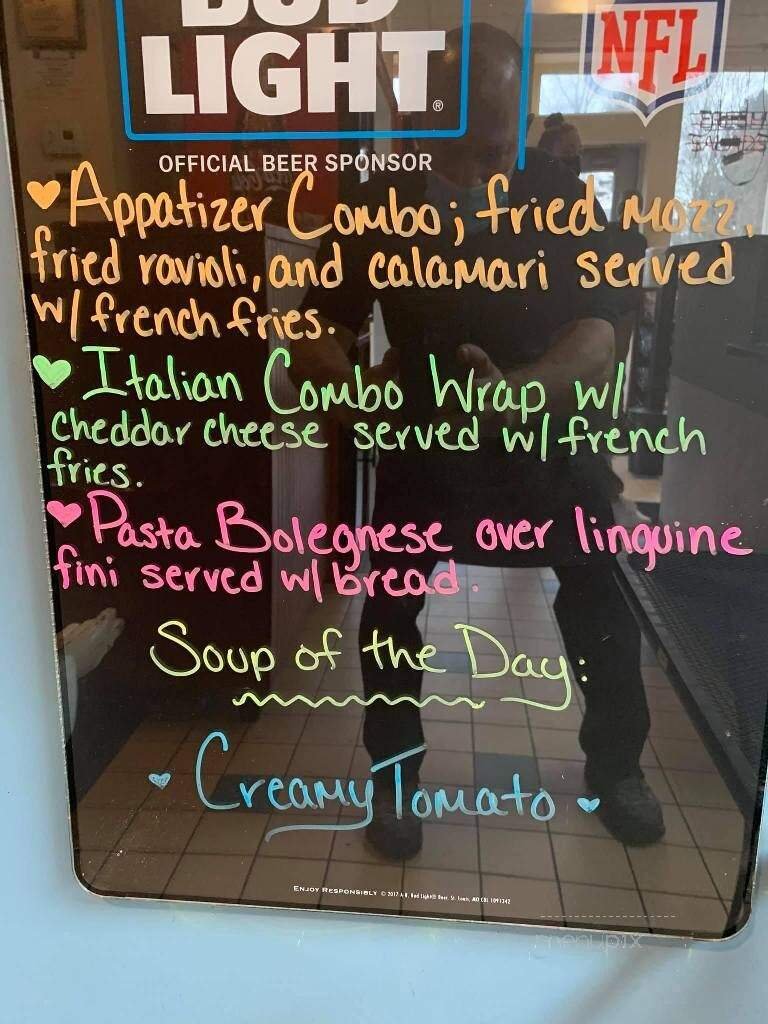 BUD
LIGHT®
NFL
OFFICIAL BEER SPONSOR
♥ Appatizer Combo; fried mozz,
fried ravioli, and calamari served
w/ french fries.
♥ Italian Combo Wrap w/
cheddar cheese served w/ french
fries.
♥ Pasta Bolegnese over linguine
fini served w/ bread.
Soup of the Day:
♥ Creamy Tomato ♥
ENJOY RESPONSIBLY © 2017 A-B, Bud Light® Beer, St. Louis, MO
menupix